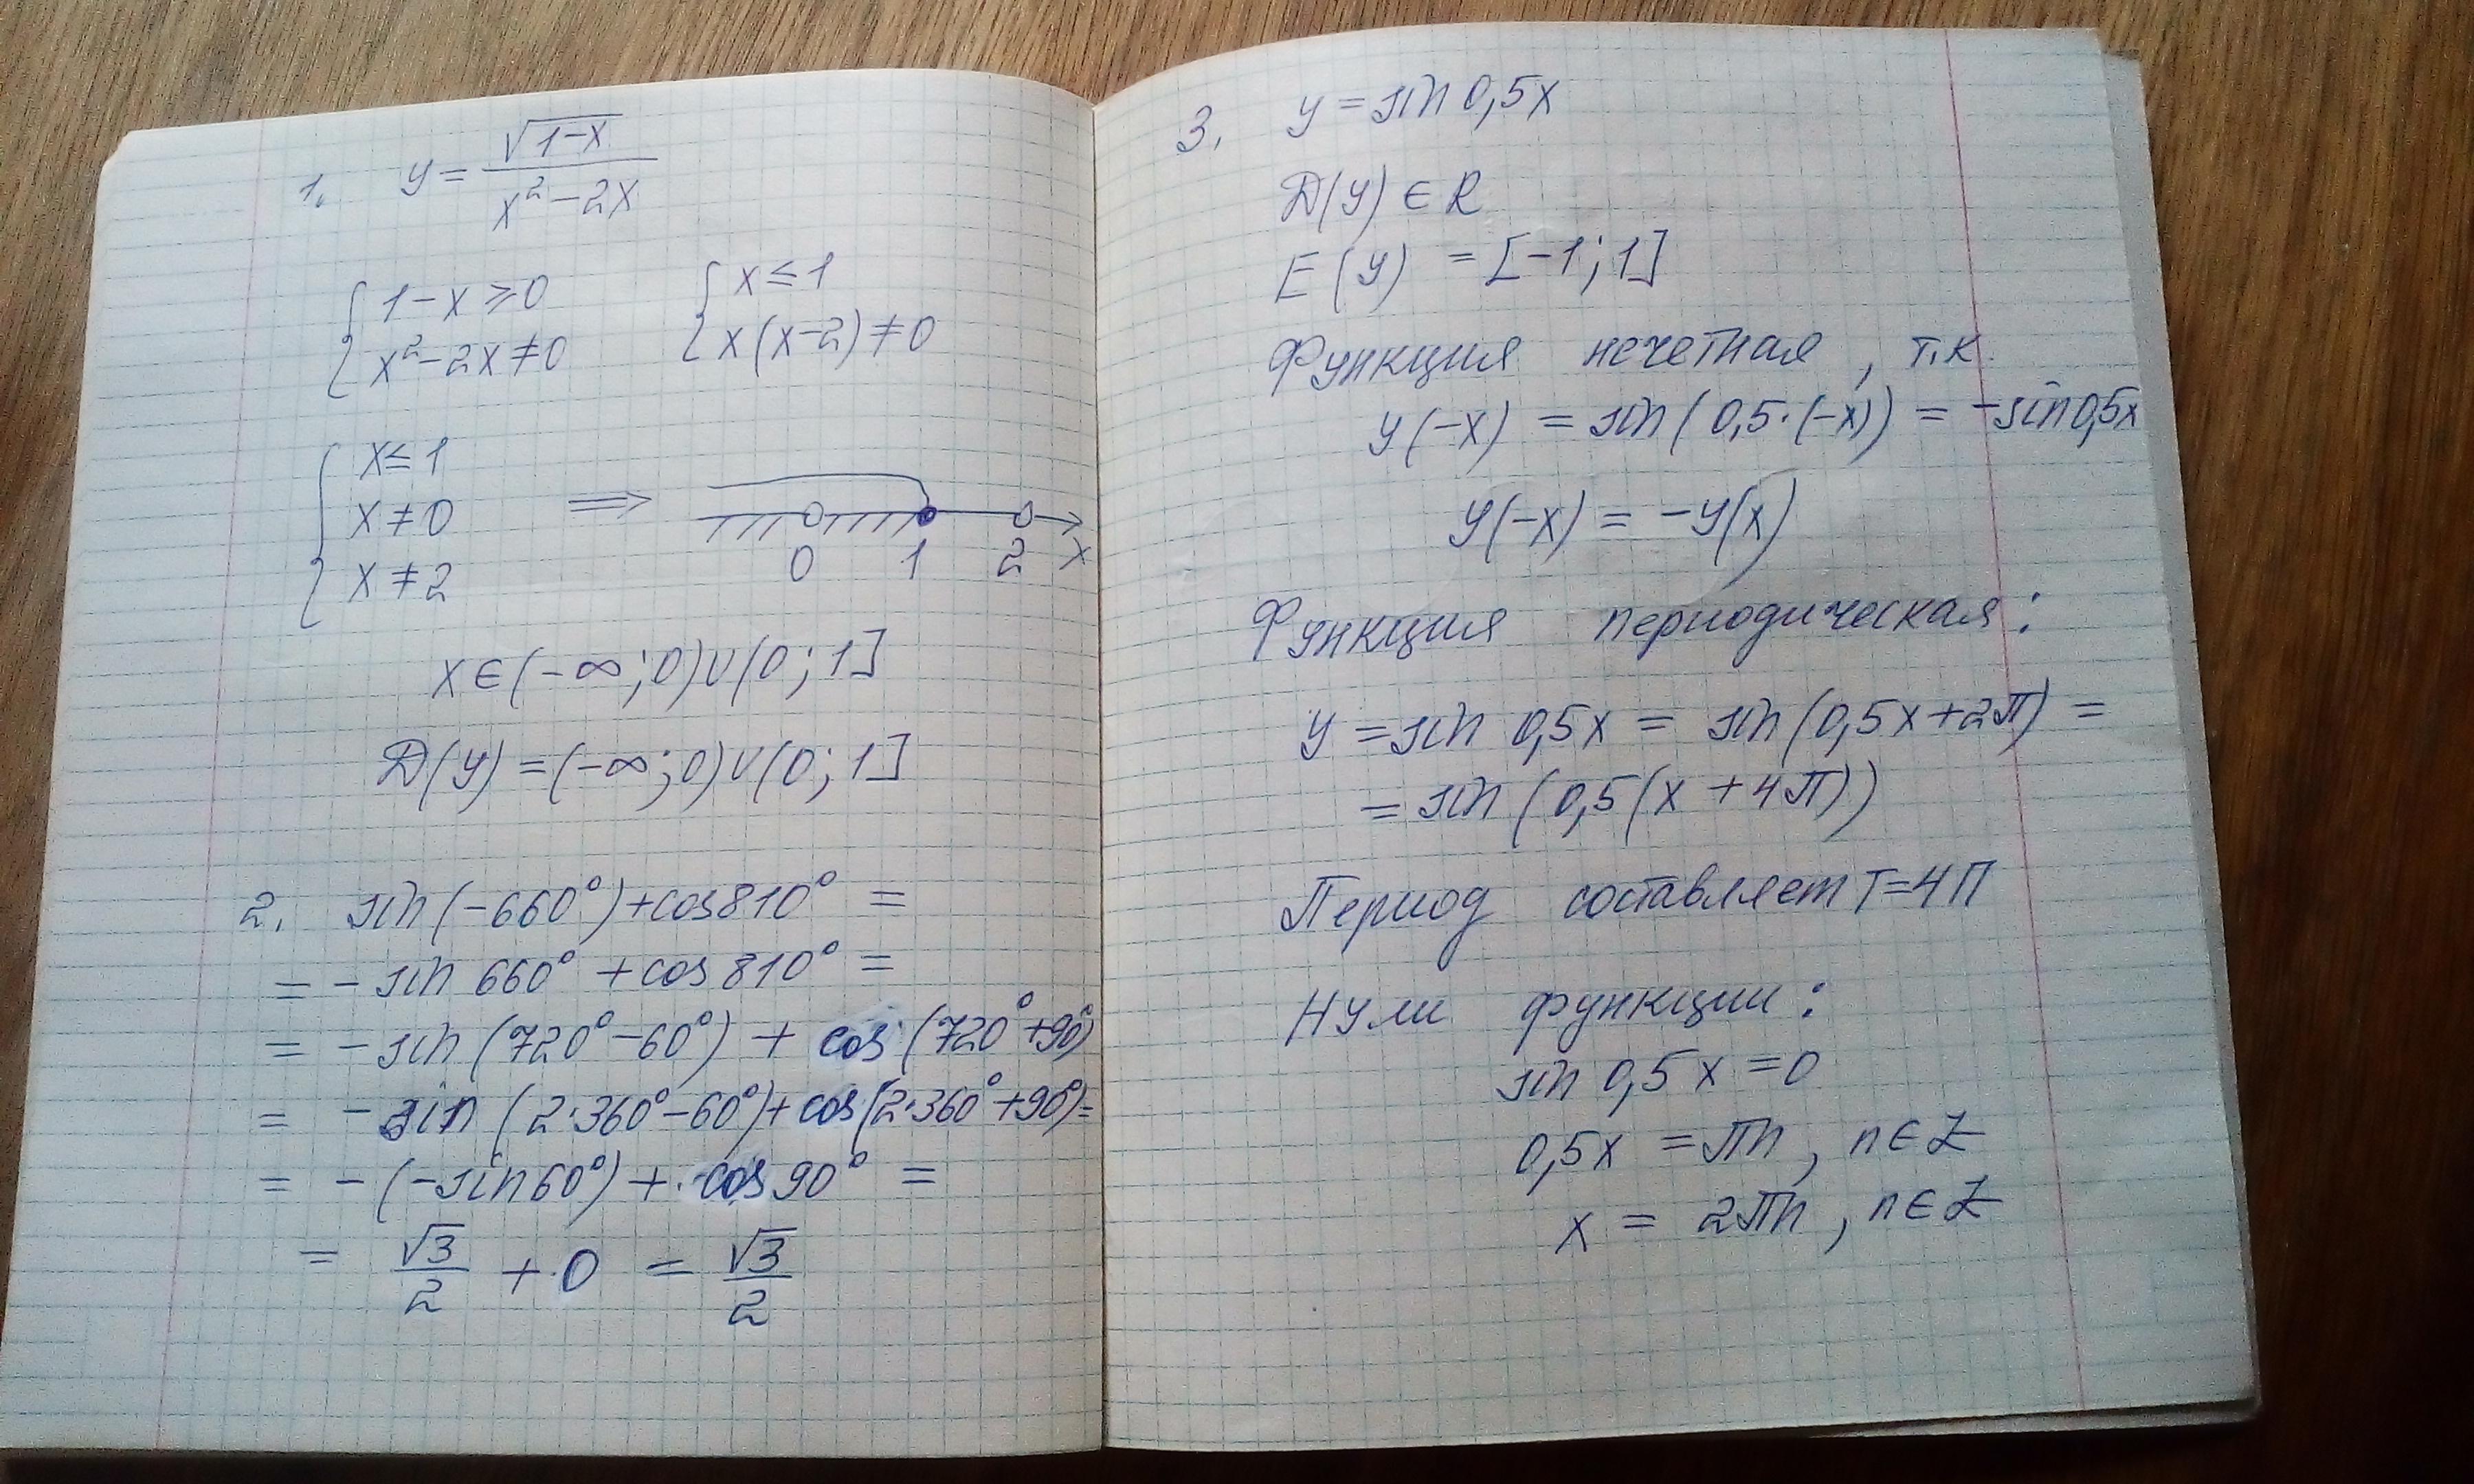 1. y = √(1-x) / (x² - 2x)
{ 1-x ≥ 0    { x ≤ 1
{ x² - 2x ≠ 0    { x(x-2) ≠ 0
{ x ≤ 1
{ x ≠ 0 ⟹
{ x ≠ 2
0 1 2 x
x ∈ (-∞; 0) ∪ (0; 1]
D(y) = (-∞; 0) ∪ (0; 1]
2. sin(-660°) + cos 810° =
= - sin 660° + cos 810° =
= - sin (720° - 60°) + cos (720° + 90°)
= - sin (2·360° - 60°) + cos (2·360° + 90°) =
= - (-sin 60°) + cos 90° =
= √3/2 + 0 = √3/2
3. y = sin 0,5x
D(y) ∈ R
E(y) = [-1; 1]
Функция нечетная, т.к.
y(-x) = sin(0,5·(-x)) = -sin 0,5x
y(-x) = -y(x)
Функция периодическая:
y = sin 0,5x = sin(0,5x + 2π) =
= sin (0,5(x + 4π))
Период составляет T = 4π
Нули функции:
sin 0,5x = 0
0,5x = πn, n ∈ Z
x = 2πn, n ∈ Z